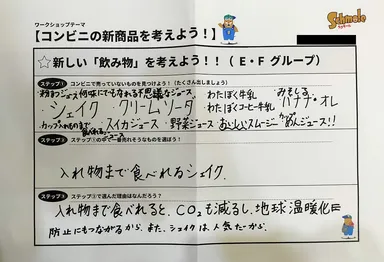 ワークショップテーマ
【コンビニの新商品を考えよう!】
Schmole
☆新しい「飲み物」を考えよう!!(E・Fグループ)
ステップ① コンビニで売っていないものを見つけよう!(たくさん出しましょう)
粉まつジュース 何味にでもなれる不思議なジュース わたぼく牛乳 みもしる
シェイク クリームソーダ わたぼくコーヒー牛乳 バナナ・オレ
カップ、入れものまで食べれるジュース スイカジュース 野菜ジュース おいしいスムージー めんジュース!!
ステップ② ステップ①の中で一番売れそうなものを選ぼう!
入れ物まで食べれるシェイク.
ステップ③ ステップ②で選んだ理由はなんだろう?
入れ物まで食べれると、CO₂も減るし、地球温暖化
防止にもつながるから、また、シェイクは人気だから。